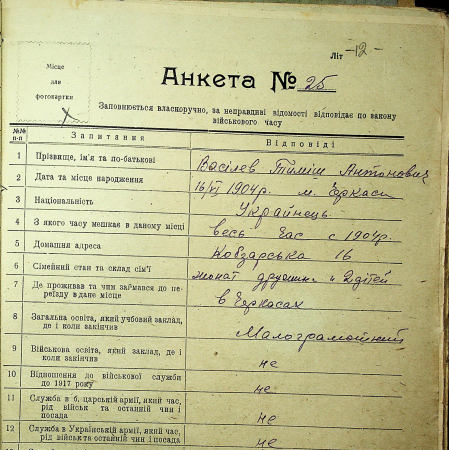 Літ -12-
Місце
для
фотокартки
Анкета № 25
Заповнюється власноручно, за неправдиві відомості відповідає по закону
військового часу
№№
п-п
Запитання
Відповіді
1 Прізвище, ім'я та по-батькові
Васілев Тиміш Антонович
2 Дата та місце народження
16/VI 1904 р. м. Черкаси
3 Національність
Українець
4 З якого часу мешкає в даному місці
весь час с 1904 р.
5 Домашня адреса
Кобзарська 16
6 Сімейний стан та склад сім'ї
жонат дружина и 2 дітей
7 Де проживав та чим займався до пе-
реїзду в дане місце
в Черкасах
8 Загальна освіта, який учбовий заклад,
де і коли закінчив
Малограмотний
9 Військова освіта, який заклад, де і
коли закінчив
не
10 Відношення до військової служби
до 1917 року
не
11 Служба в б, царській армії, який час,
рід військ та останній чин і
посада
не
12 Служба в Українській армії, який час,
рід військ та останній чин і посада
не